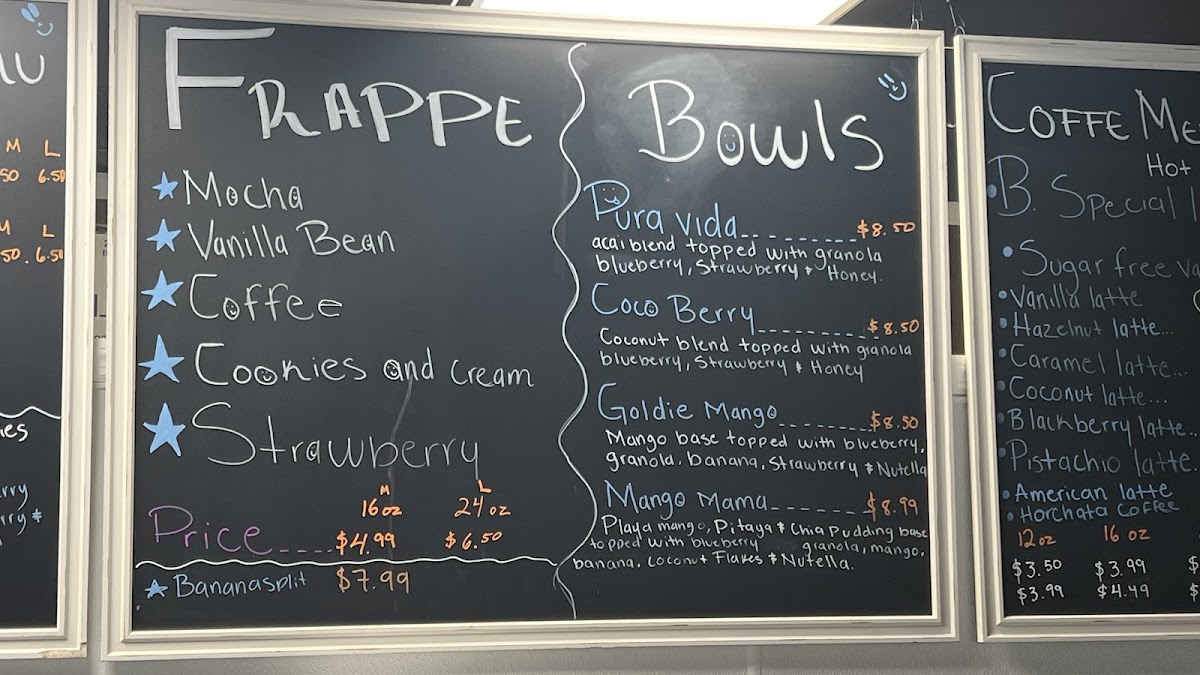 M L
50 6.50
M L
50. 6.50
FRAPPE
Mocha
Vanilla Bean
Coffee
Cookies and cream
Strawberry
M L
16oz 24oz
Price....$4.99 $6.50
Bananasplit $7.99
Bowls
Pura vida.........$8.50
acai blend topped with granola
blueberry, Strawberry & Honey.
Coco Berry.........$8.50
Coconut blend topped with granola
blueberry, Strawberry & Honey
Goldie Mango........$8.50
Mango base topped with blueberry,
granola, banana, Strawberry & Nutella
Mango Mama.......$8.99
Playa mango, Pitaya & Chia Pudding base
topped with blueberry granola, mango,
banana, coconut Flakes & Nutella.
COFFE Me
Hot
B. Special
Sugar free va
Vanilla latte
Hazelnut latte...
Caramel latte...
Coconut latte...
Blackberry latte..
Pistachio latte
American latte
Horchata COFFEE
12oz 16 oz
$3.50 $3.99 $
$3.99 $4.49 $